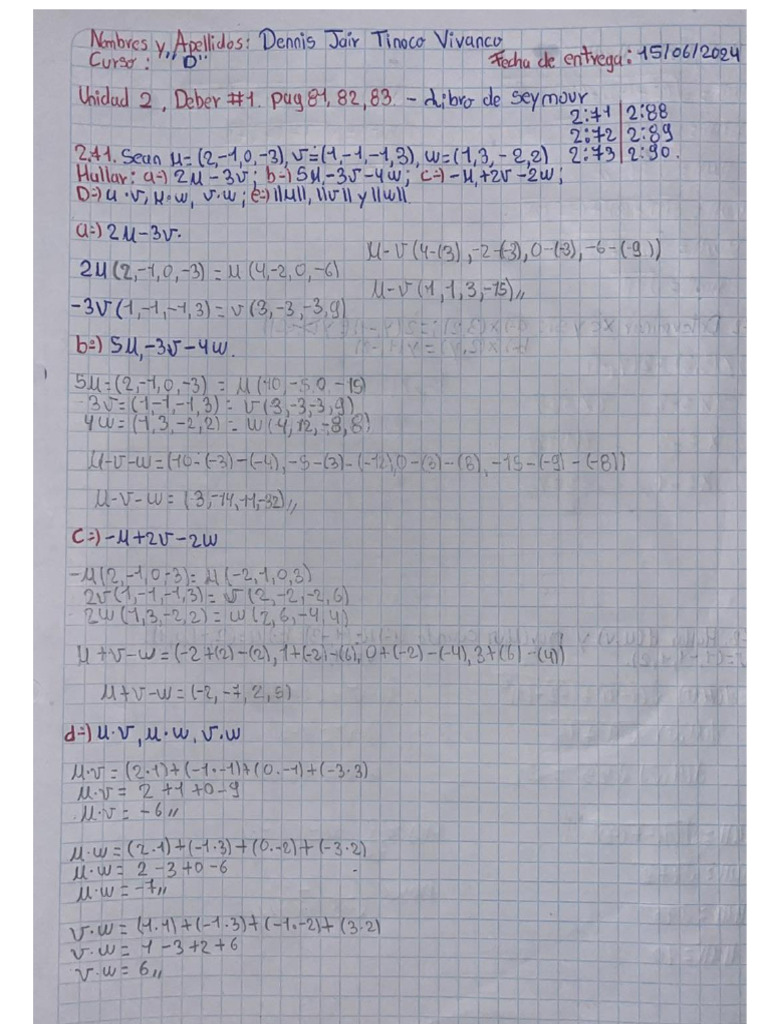 Nombres y Apellidos: Dennis Jair Tinoco Vivanco
Curso: "D"
Fecha de entrega: 15/06/2024
Unidad 2, Deber #1. pag 81, 82, 83. - Libro de Seymour
2:71 | 2:88
2:72 | 2:89
2:73 | 2:90.
2.71. Sean μ=(2,-1,0,-3), v=(1,-1,-1,3), w=(1,3,-2,2)
Hallar: a=) 2μ-3v; b=) 5μ,-3v-4w; c=) -μ,+2v-2w;
D=) u·v, μ·w, v·w; e=) ||μ||, ||v|| y ||w||.
a=) 2μ-3v.
2μ(2,-1,0,-3) = μ(4,-2,0,-6)
-3v(1,-1,-1,3) = v(3,-3,-3,9)
μ-v(4-(3),-2-(-3),0-(-3),-6-(-9))
μ-v(1,1,3,-15),,
b=) 5μ,-3v-4w.
5μ=(2,-1,0,-3) = μ(10,-5,0,-15)
-3v=(1,-1,-1,3) = v(3,-3,-3,9)
4w=(1,3,-2,2) = w(4,12,-8,8)
μ-v-w=(10-(-3)-(-4),-5-(3)-(-12),0-(3)-(8),-15-(-9)-(-8))
μ-v-w=(3,-14,11,-32),,
c=) -μ+2v-2w
-μ(2,-1,0,-3) = μ(-2,1,0,3)
2v(1,-1,-1,3) = v(2,-2,-2,6)
2w(1,3,-2,2) = w(2,6,-4,4)
μ+v-w=(-2+(2)-(2),1+(-2)-(6),0+(-2)-(-4),3+(6)-(4))
μ+v-w=(-2,-7,2,5)
d=) u·v, μ·w, v·w
μ·v=(2·1)+(-1·-1)+(0·-1)+(-3·3)
μ·v= 2+1+0-9
μ·v= -6,,
μ·w=(2·1)+(-1·3)+(0·-2)+(-3·2)
μ·w= 2-3+0-6
μ·w=-7,,
v·w=(1·1)+(-1·3)+(-1·-2)+(3·2)
v·w= 1-3+2+6
v·w= 6,,